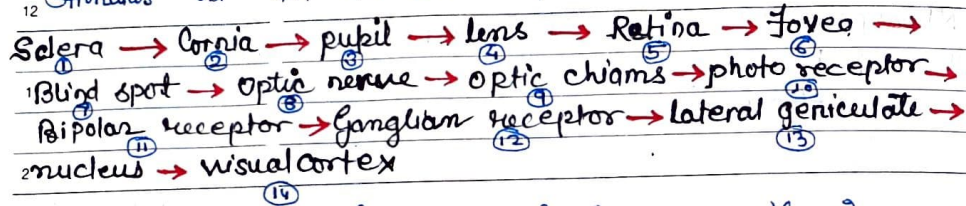 12
Sclera → Cornia → pupil → lens → Retina → Fovea →
① ② ③ ④ ⑤ ⑥
1 Blind spot → Optic nerve → optic chiams → photo receptor →
⑦ ⑧ ⑨ ⑩
Bipolar receptor → Ganglian receptor → lateral geniculate →
⑪ ⑫ ⑬
2 nucleus → visual cortex
⑭